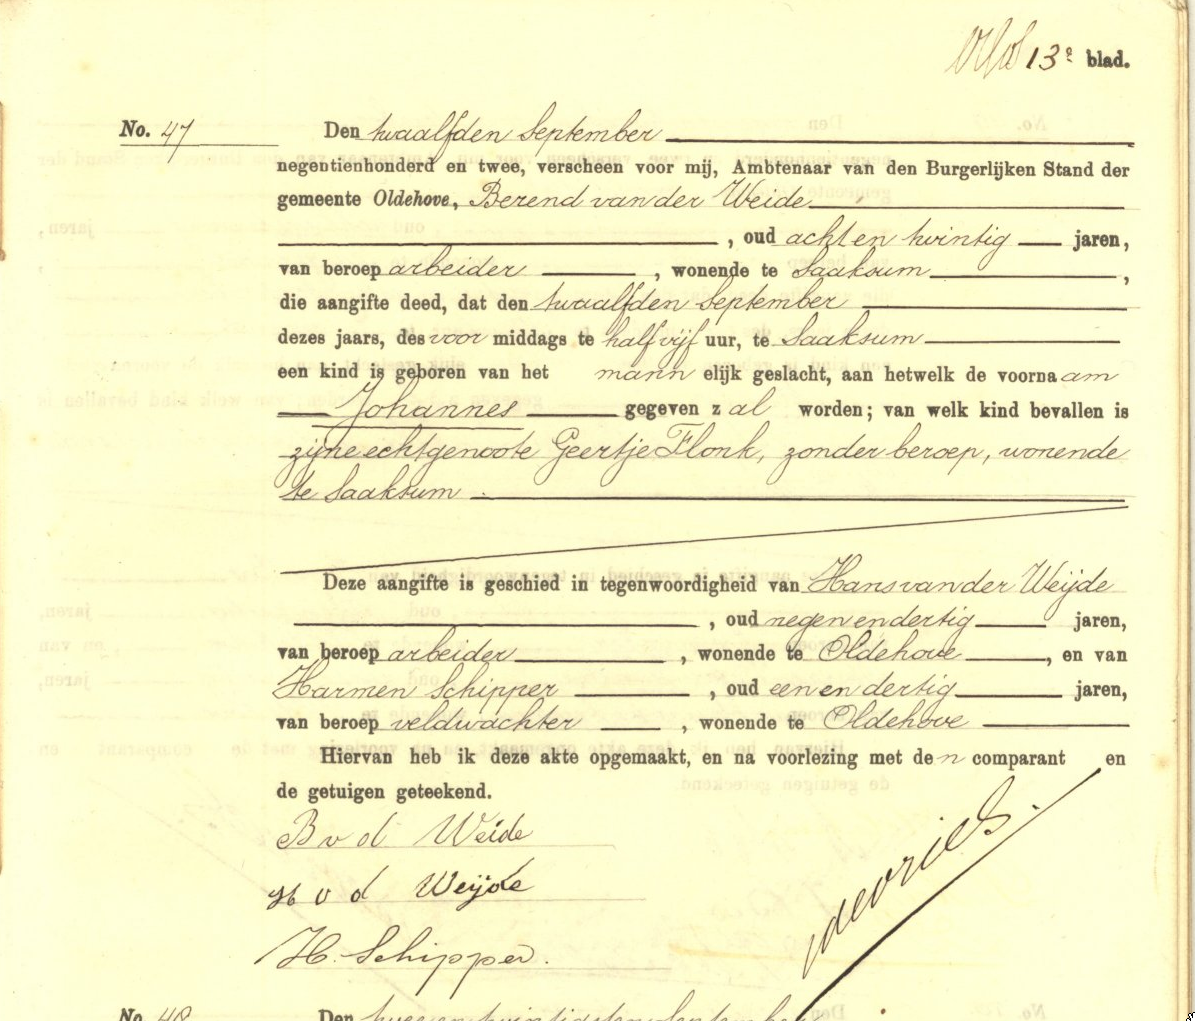 13e blad.
No. 47 Den twaalfden September
negentienhonderd en twee, verscheen voor mij, Ambtenaar van den Burgerlijken Stand der
gemeente Oldehove, Berend van der Weide
, oud acht en twintig jaren,
van beroep arbeider , wonende te Saaksum ,
die aangifte deed, dat den twaalfden September
dezes jaars, des voor middags te half vijf uur, te Saaksum
een kind is geboren van het mann elijk geslacht, aan hetwelk de voorna am
Johannes gegeven z al worden; van welk kind bevallen is
zijne echtgenoote Geertje Flonk, zonder beroep, wonende
te Saaksum .
Deze aangifte is geschied in tegenwoordigheid van Hans van der Weijde
, oud negen en dertig jaren,
van beroep arbeider , wonende te Oldehove , en van
Harmen Schipper , oud een en dertig jaren,
van beroep veldwachter , wonende te Oldehove
Hiervan heb ik deze akte opgemaakt, en na voorlezing met den comparant en
de getuigen geteekend.
B v d Weide
H v d Weijde
devries.
H. Schipper.
No. 48 Den twee en twintigsten September